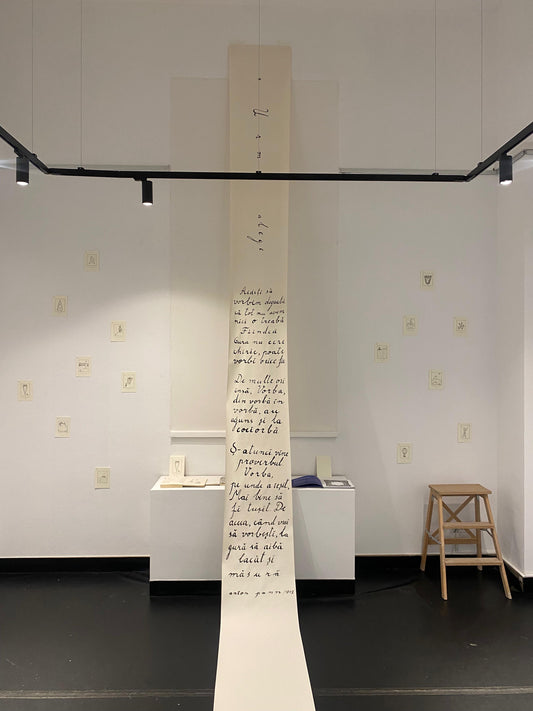 Aideți să
vorbim degeabă
că tot nu avem
nici o treabă
Fiindcă
Gura nu cere
chirie, poate
vorbi orice fi
De multe ori
însă, Vorba,
din vorbă în
vorbă, au
ajuns și la
cociorbă
Ș-atunci vine
proverbul
Vorba,
pe unde a ieșit,
Mai bine să
fi tușit De
aceea, când vrei
să vorbești, la
gură să aibă
lacăt și
măsură
anton pann